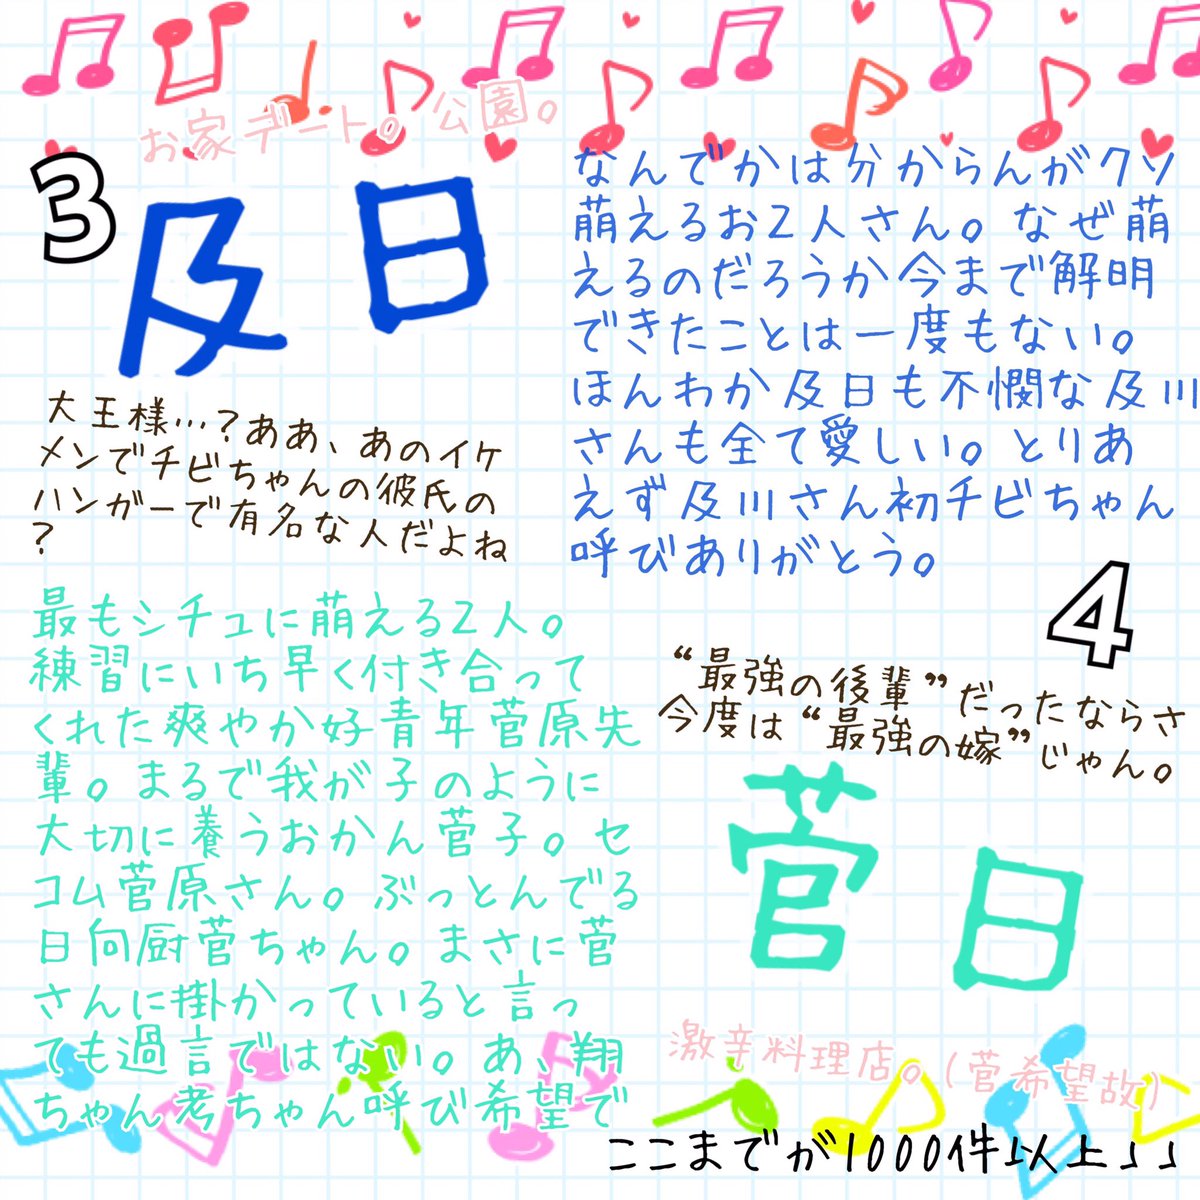 お家デート。公園。
3
及日
なんでかは分からんがクソ
萌えるお2人さん。なぜ萌
えるのだろうか今まで解明
できたことは一度もない。
ほんわか及日も不憫な及川
さんも全て愛しい。とりあ
えず及川さん初チビちゃん
呼びありがとう。
大王様…?ああ、あのイケ
メンでチビちゃんの彼氏の
ハンガーで有名な人だよね
?
4
“最強の後輩”だったならさ
今度は“最強の嫁”じゃん。
菅日
最もシチュに萌える2人。
練習にいち早く付き合って
くれた爽やか好青年菅原先
輩。まるで我が子のように
大切に養うおかん菅子。セ
コム菅原さん。ぶっとんでる
日向厨菅ちゃん。まさに菅
さんに掛かっていると言っ
ても過言ではない。あ、翔
ちゃん考ちゃん呼び希望で
激辛料理店。(菅希望故)
ここまでが1000件以上↓↓